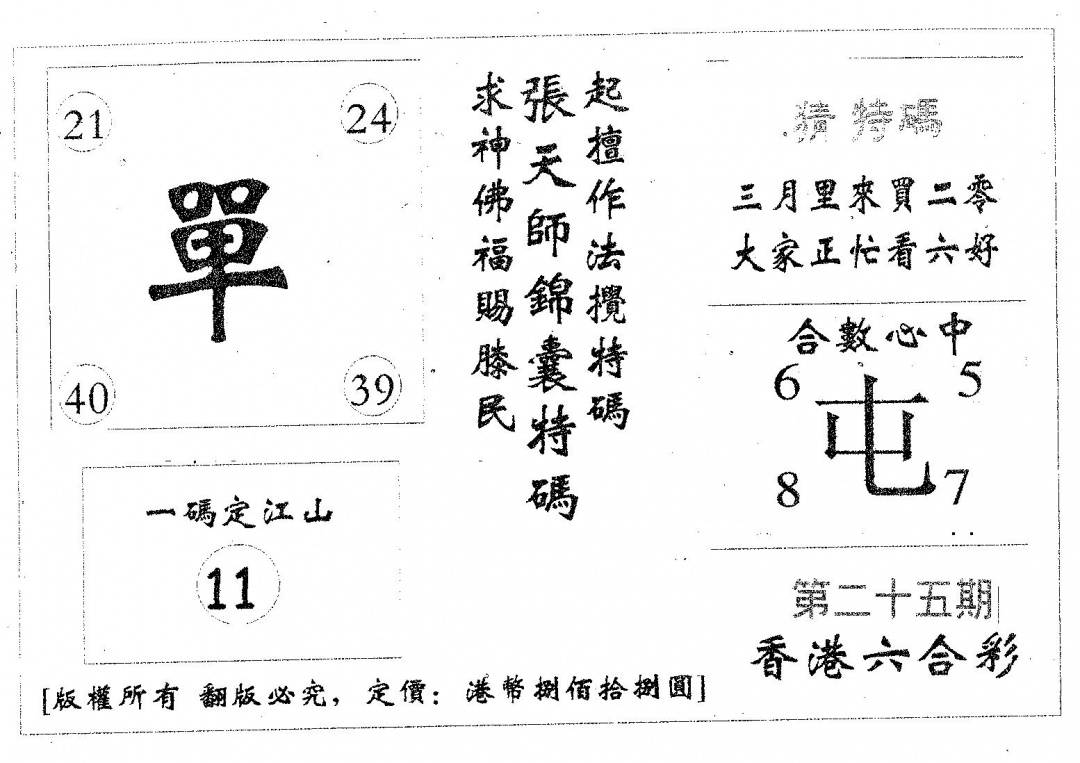 21
24
單
40
39
一碼定江山
11
起擅作法攪特碼
張天師錦囊特碼
求神佛福賜滕民
猜特碼
三月里來買二零
大家正忙看六好
合數心中
6
5
屯
8
7
第二十五期
香港六合彩
[版權所有 翻版必究，定價：港幣捌佰拾捌圓]